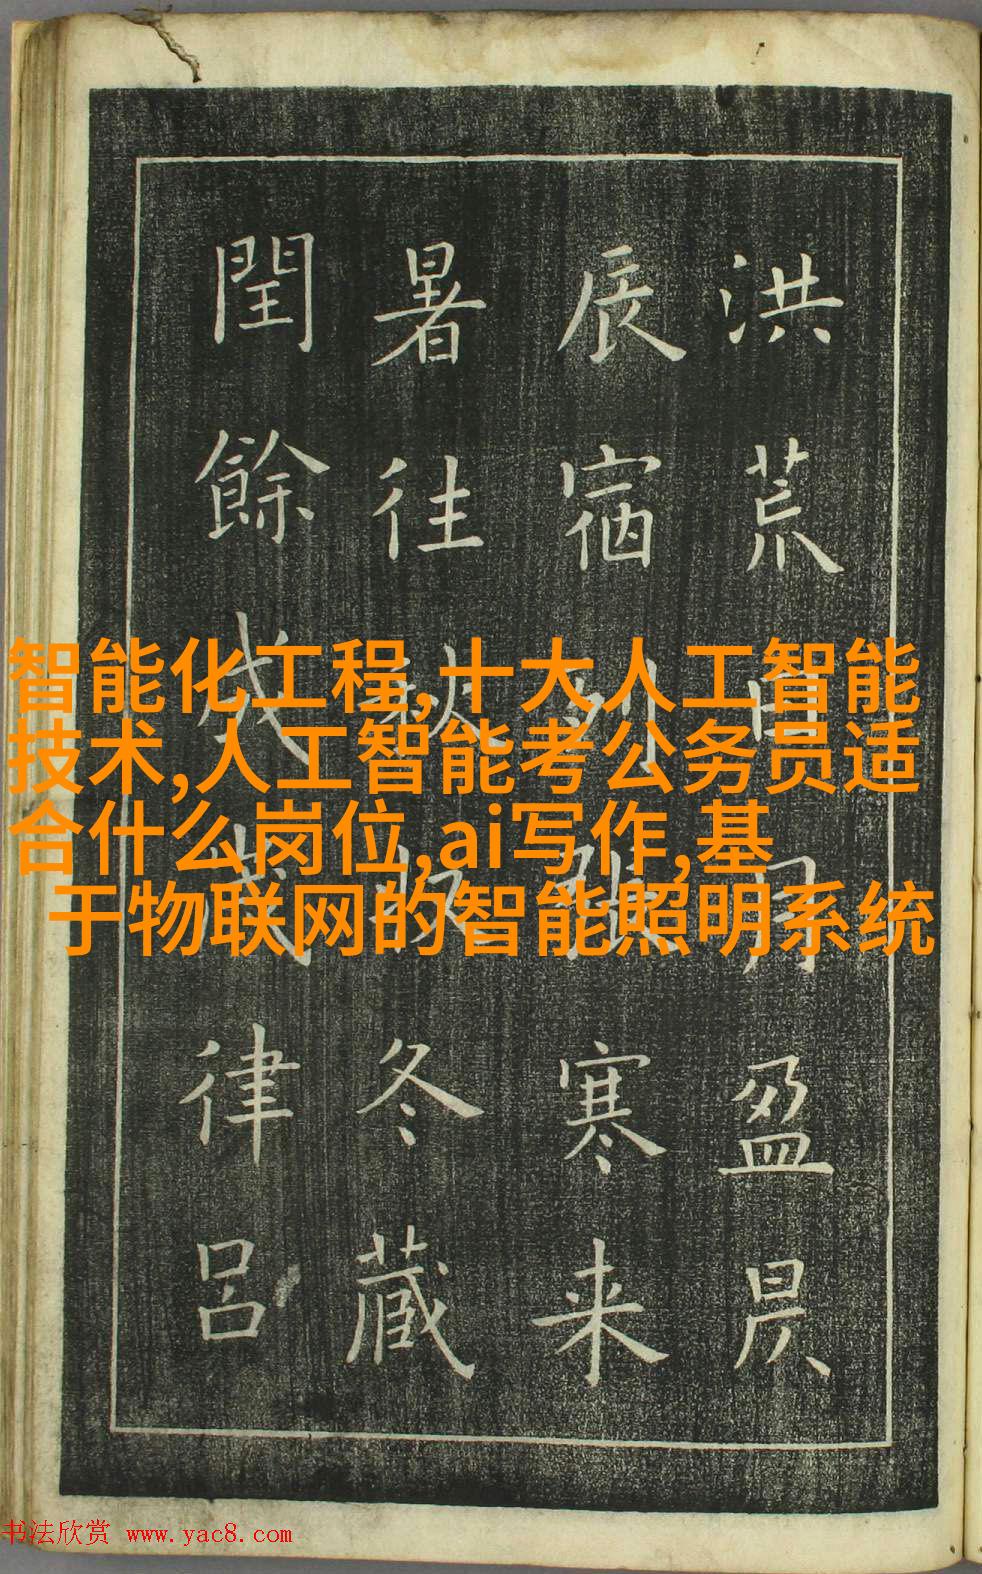 洪荒日月盈昃
辰宿列張寒来
暑往秋收冬藏
閏餘成歲律呂
智能化工程,十大人工智能
技术,人工智能考公务员适
合什么岗位,ai写作,基
于物联网的智能照明系统
书法欣赏 www.yac8.com